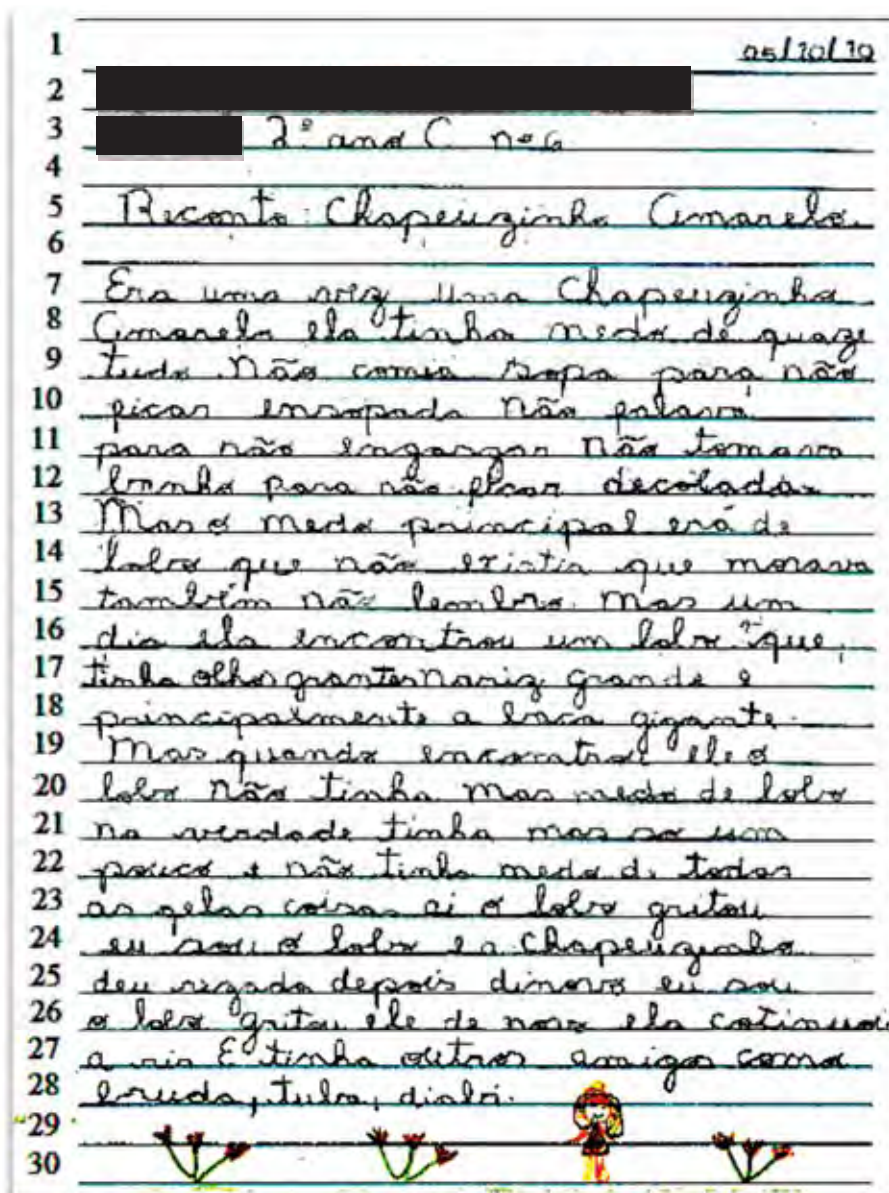 1 05/10/10
2
3 2º ano C nº 6
4
5 Reconto: Chapeuzinho Amarelo.
6
7 Era uma vez uma Chapeuzinho
8 Amarelo ela tinha medo de quaze
9 tudo Não comia sopa para não
10 ficar ensopada Não falava
11 para não engasgar Não tomava
12 banho para não ficar decolada
13 Mas o medo principal era de
14 lobo que não existia que morava
15 também não lembro. Mas um
16 dia ela encontrou um lobo que
17 tinha olhos grantes Nariz grande e
18 principalmente a boca gigante.
19 Mas quando encontrou ele o
20 lobo Não tinha mas medo de lobo
21 na verdade tinha mas so um
22 pouco e não tinha medo de todas
23 as gelas coisas ai o lobo gritou
24 eu sou o lobo e a Chapeuzinho
25 deu rizada depois dinovo eu sou
26 o lobo gritou ele de novo ela cotinuou
27 a rir E tinha outros amigos como
28 bruda, tuba, diabri.
29
30